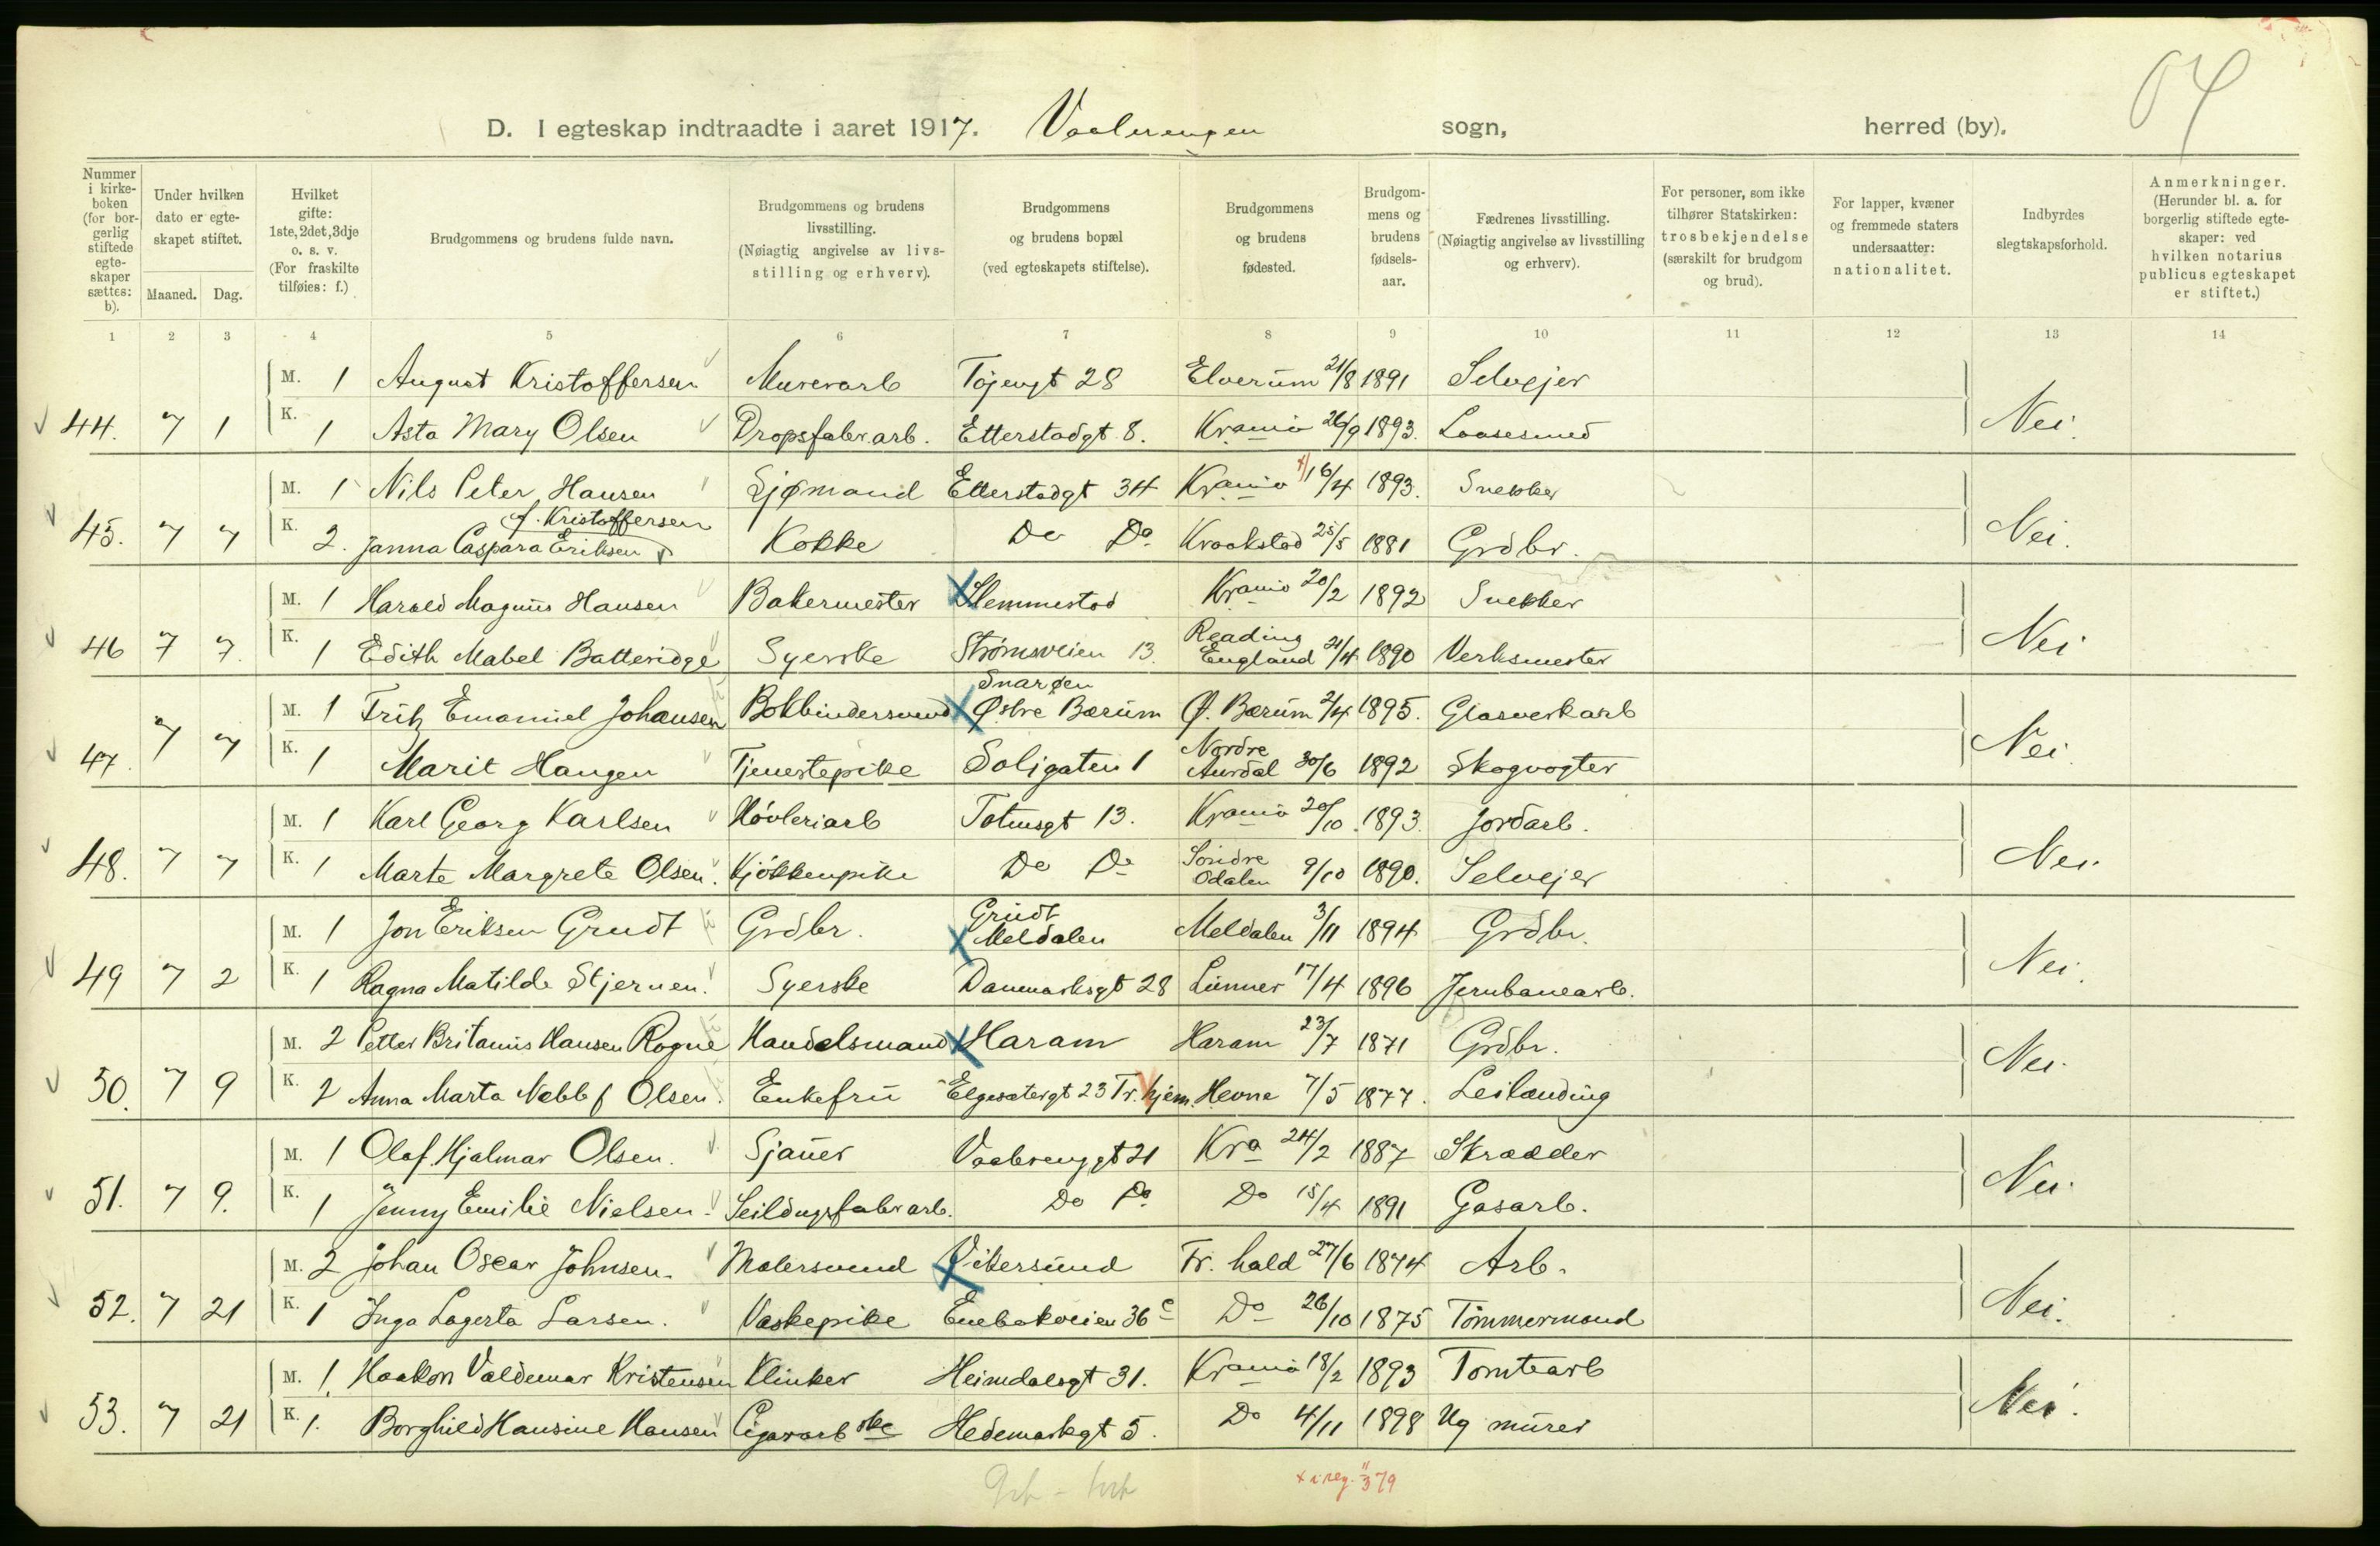 D. I egteskap indtraadte i aaret 1917. Vaalerengen sogn, herred (by).
Nummer i kirkeboken (for borgerlig stiftede egteskaper sættes: b).
Under hvilken dato er egteskapet stiftet.
Maaned. Dag.
Hvilket gifte: 1ste, 2det, 3dje o. s. v. (For fraskilte tilføies: f.)
Brudgommens og brudens fulde navn.
Brudgommens og brudens livsstilling. (Nøiagtig angivelse av livsstilling og erhverv).
Brudgommens og brudens bopæl (ved egteskapets stiftelse).
Brudgommens og brudens fødested.
Brudgommens og brudens fødselsaar.
Fædrenes livsstilling. (Nøiagtig angivelse av livsstilling og erhverv).
For personer, som ikke tilhører Statskirken: trosbekjendelse (særskilt for brudgom og brud).
For lapper, kvæner og fremmede staters undersaatter: nationalitet.
Indbyrdes slegtskapsforhold.
Anmerkninger. (Herunder bl. a. for borgerlig stiftede egteskaper: ved hvilken notarius publicus egteskapet er stiftet.)
1 2 3 4 5 6 7 8 9 10 11 12 13 14
M. 1 August Kristoffersen Murerarb Tøjengt 28 Elverum 21/8 1891 Selvejer
44. 7 1 K. 1 Asta Mary Olsen Dropsfabr.arb. Etterstadgt 8. Krania 26/9 1893. Laasesmed Nei.
M. 1 Nils Peter Hansen Sjømand Etterstadgt 34 Krania 16/4 1893. Snekker
f. Kristoffersen
45. 7 7 K. 2. Janna Caspara Eriksen Kokke Do Do Kraakstad 25/5 1881 Grdbr. Nei.
M. 1 Harald Magnus Hansen Bakermester Slemmestad Krania 20/2 1892 Snekker
46 7 7. K. 1 Edith Mabel Batteridge Syerske Strømsveien 13. Reading England 21/4 1890 Verksmester Nei
M. 1 Fritz Emanuel Johansen Bokbindersvend Snarøen Østre Bærum Ø. Bærum 2/4 1895. Glasverkarb
47. 7 7 K. 1 Marit Haugen Tjenestepike Soligaten 1 Nordre Aurdal 30/6 1892 Skogvogter Nei.
M. 1 Karl Georg Karlsen Høvleriarb Totensgt 13. Krania 20/10 1893. Jordarb.
48. 7 7 K. 1 Marte Margrete Olsen. Kjøkkenpike Do Do Søndre Odalen 9/10 1890. Selvejer Nei.
M. 1 Jon Eriksen Grudt Grdbr. Grudt Meldalen Meldalen 3/11 1894 Grdbr.
49 7 2 K. 1 Ragna Matilde Stjernen. Syerske Danmarksgt 28 Lunner 17/4 1896 Jernbanearb. Nei.
M. 2 Petter Britanus Hansen Rogne Handelsmand Haram Haram 23/7 1871 Grdbr.
50. 7 9 K. 2 Anna Marta Nebb f Olsen. Enkefru Elgesætergt 23 Tr.hjem. Hevne 7/5 1877. Leilænding Nei.
M. 1 Olaf Hjalmar Olsen. Sjauer Vaalerenggt 21 Kra 24/2 1887 Skrædder
51. 7 9. K. 1 Jenny Emilie Nielsen. Seildugsfabrarb. Do Do Do 15/4 1891 Gasarb. Nei.
M. 2 Johan Oscar Johnsen. Malersvend Vikersund Fr. hald 27/6 1874 Arb.
52. 7 21 K. 1 Inga Lagerta Larsen. Vaskepike Enebakveien 36 c Do 26/10 1875 Tømmermand Nei.
M. 1. Haakon Valdemar Kristensen Klinker Heimdalsgt 31. Krania 18/2 1893 Tomtearb
53. 7 21 K. 1. Borghild Hansine Hansen Cigararbske Hedemarkgt 5. Do 4/11 1898 Ug murer Nei.
x i reg. 379